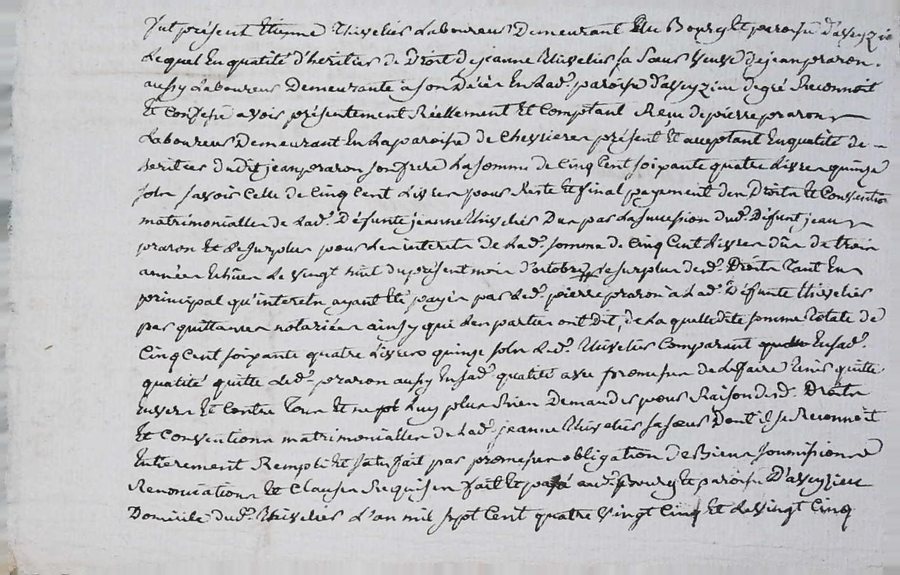 fut présent Etienne Thivelier Laboureur Demeurant Au Bourg Et paroise d'asseyzieu
Lequel En qualité d'héritier de Droit de jeanne Thivelier sa Sœur veuve de jean praron.
aussy Laboureur Demeurante à son Décès En Lad. paroise d'asseyzieu de gré Reconnoit
Et Confesse avoir présentement Réellement Et Comptant Reçu de pierre praron
Laboureur Demeurant En La paroise de Cheyrieres présent Et acceptant En qualité de
héritier dudit jean praron son frere La somme de Cinq Cent soixante quatre Livres quinze
sols savoir Celle de Cinq Cent Livres pour Reste Et final payement des Droits Et Conventions
matrimonialles de Lad. Défunte jeanne Thivelier Dus par La succession dud. Défunt jean
praron Et Le surplus pour Les interets de Lad. somme de Cinq Cent Livres dûs de trois
années Echües Le vingt huit du présent mois d'octobre, le surplus desd. Droits Tant En
principal qu'interets ayant Eté payés par Led. pierre praron à Lad. Défunte Thivelier
par quittances notariées ainsy que Les parties ont Dit, de La quelle dite somme Totale de
Cinq Cent soixante quatre Livres quinze sols Led. Thivelier Comparant En sad.
qualité quitte Led. praron aussy En sad. qualité avec promesse de Le faire Tenir quitte
Envers Et Contre Tous Et ne plus Luy plus Rien Demander pour Raison desd. Droits
Et Conventions matrimonialles de Lad. jeanne Thivelier sa sœur Dont il se Reconnoit
Entierement Rempli Et satisfait par promesses obligation de Biens soumissions
Renonciations Et Clauses Requises fait Et passé aud. Bourg Et paroise D'asseyzieu
Domicile dud. Thivelier L'an mil sept Cent quatre vingt Cinq Et Le vingt Cinq